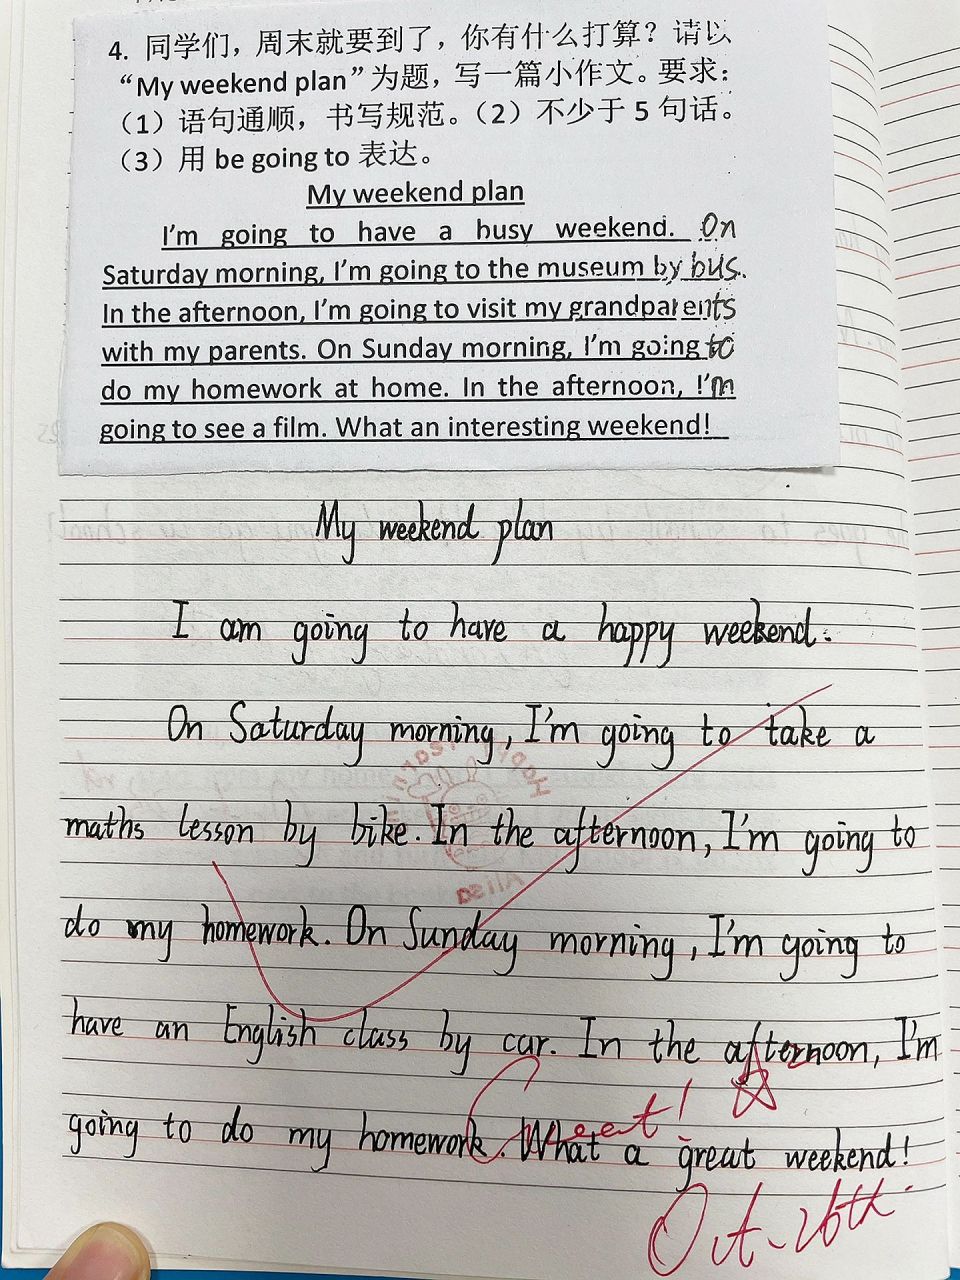 4. 同学们，周末就要到了，你有什么打算？请以
“My weekend plan”为题，写一篇小作文。要求：
（1）语句通顺，书写规范。（2）不少于 5 句话。
（3）用 be going to 表达。
My weekend plan
I'm going to have a busy weekend. On
Saturday morning, I'm going to the museum by bus.
In the afternoon, I'm going to visit my grandparents
with my parents. On Sunday morning, I'm going to
do my homework at home. In the afternoon, I'm
going to see a film. What an interesting weekend!
My weekend plan
I am going to have a happy weekend.
On Saturday morning, I'm going to take a
maths lesson by bike. In the afternoon, I'm going to
do my homework. On Sunday morning, I'm going to
have an English class by car. In the afternoon, I'm
going to do my homework. What a great weekend!
Great!
Oct. 26th.